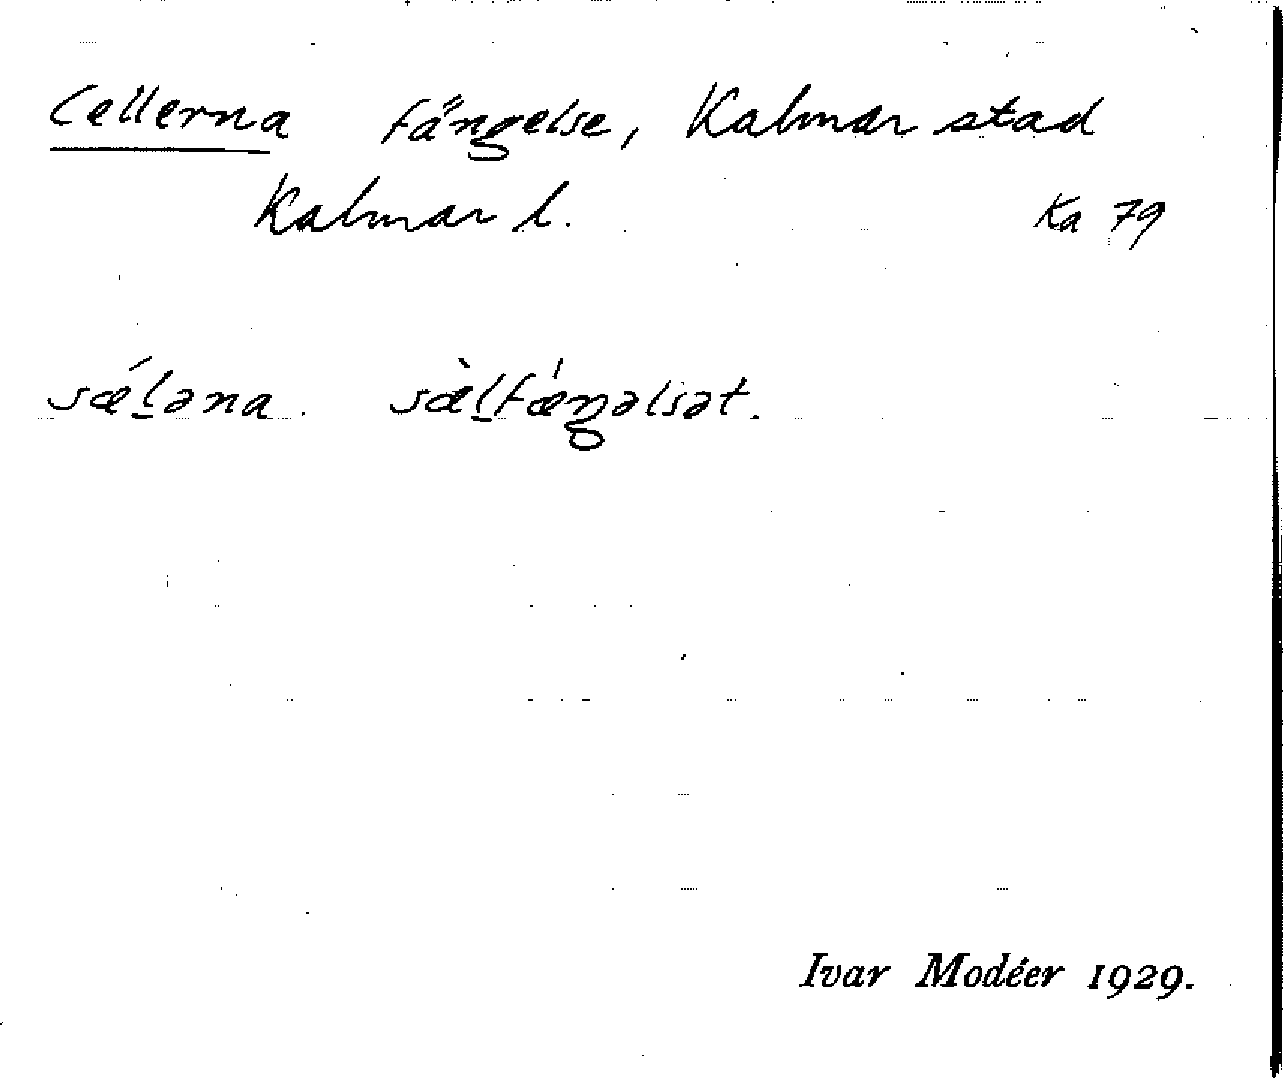 Cellerna fängelse, Kalmar stad
Kalmar l. Ka 79
sǽl̲əna. sæ̀l̲fæ̍ŋəlsət.
Ivar Modéer 1929.